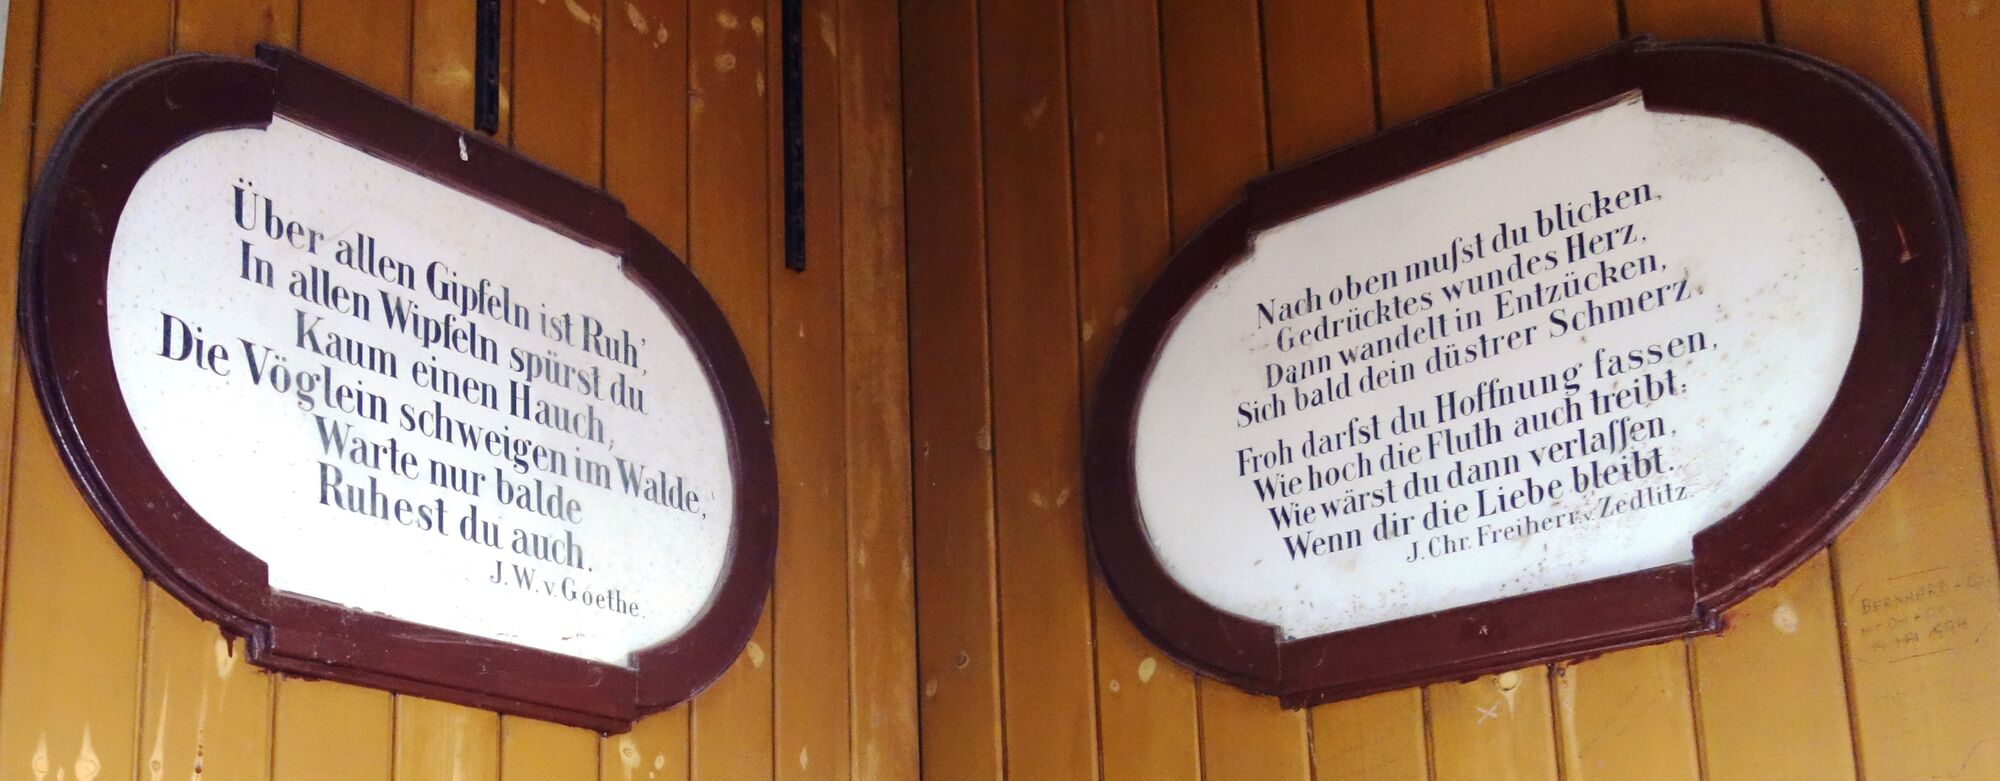 Über allen Gipfeln ist Ruh',
In allen Wipfeln spürst du
Kaum einen Hauch,
Die Vöglein schweigen im Walde,
Warte nur balde
Ruhest du auch.
J. W. v. Goethe.
Nach oben muſst du blicken,
Gedrücktes wundes Herz,
Dann wandelt in Entzücken,
Sich bald dein düstrer Schmerz.
Froh darfst du Hoffnung fassen,
Wie hoch die Fluth auch treibt:
Wie wärst du dann verlaſſen,
Wenn dir die Liebe bleibt.
J. Chr. Freiherr v. Zedlitz.
BERNHARD